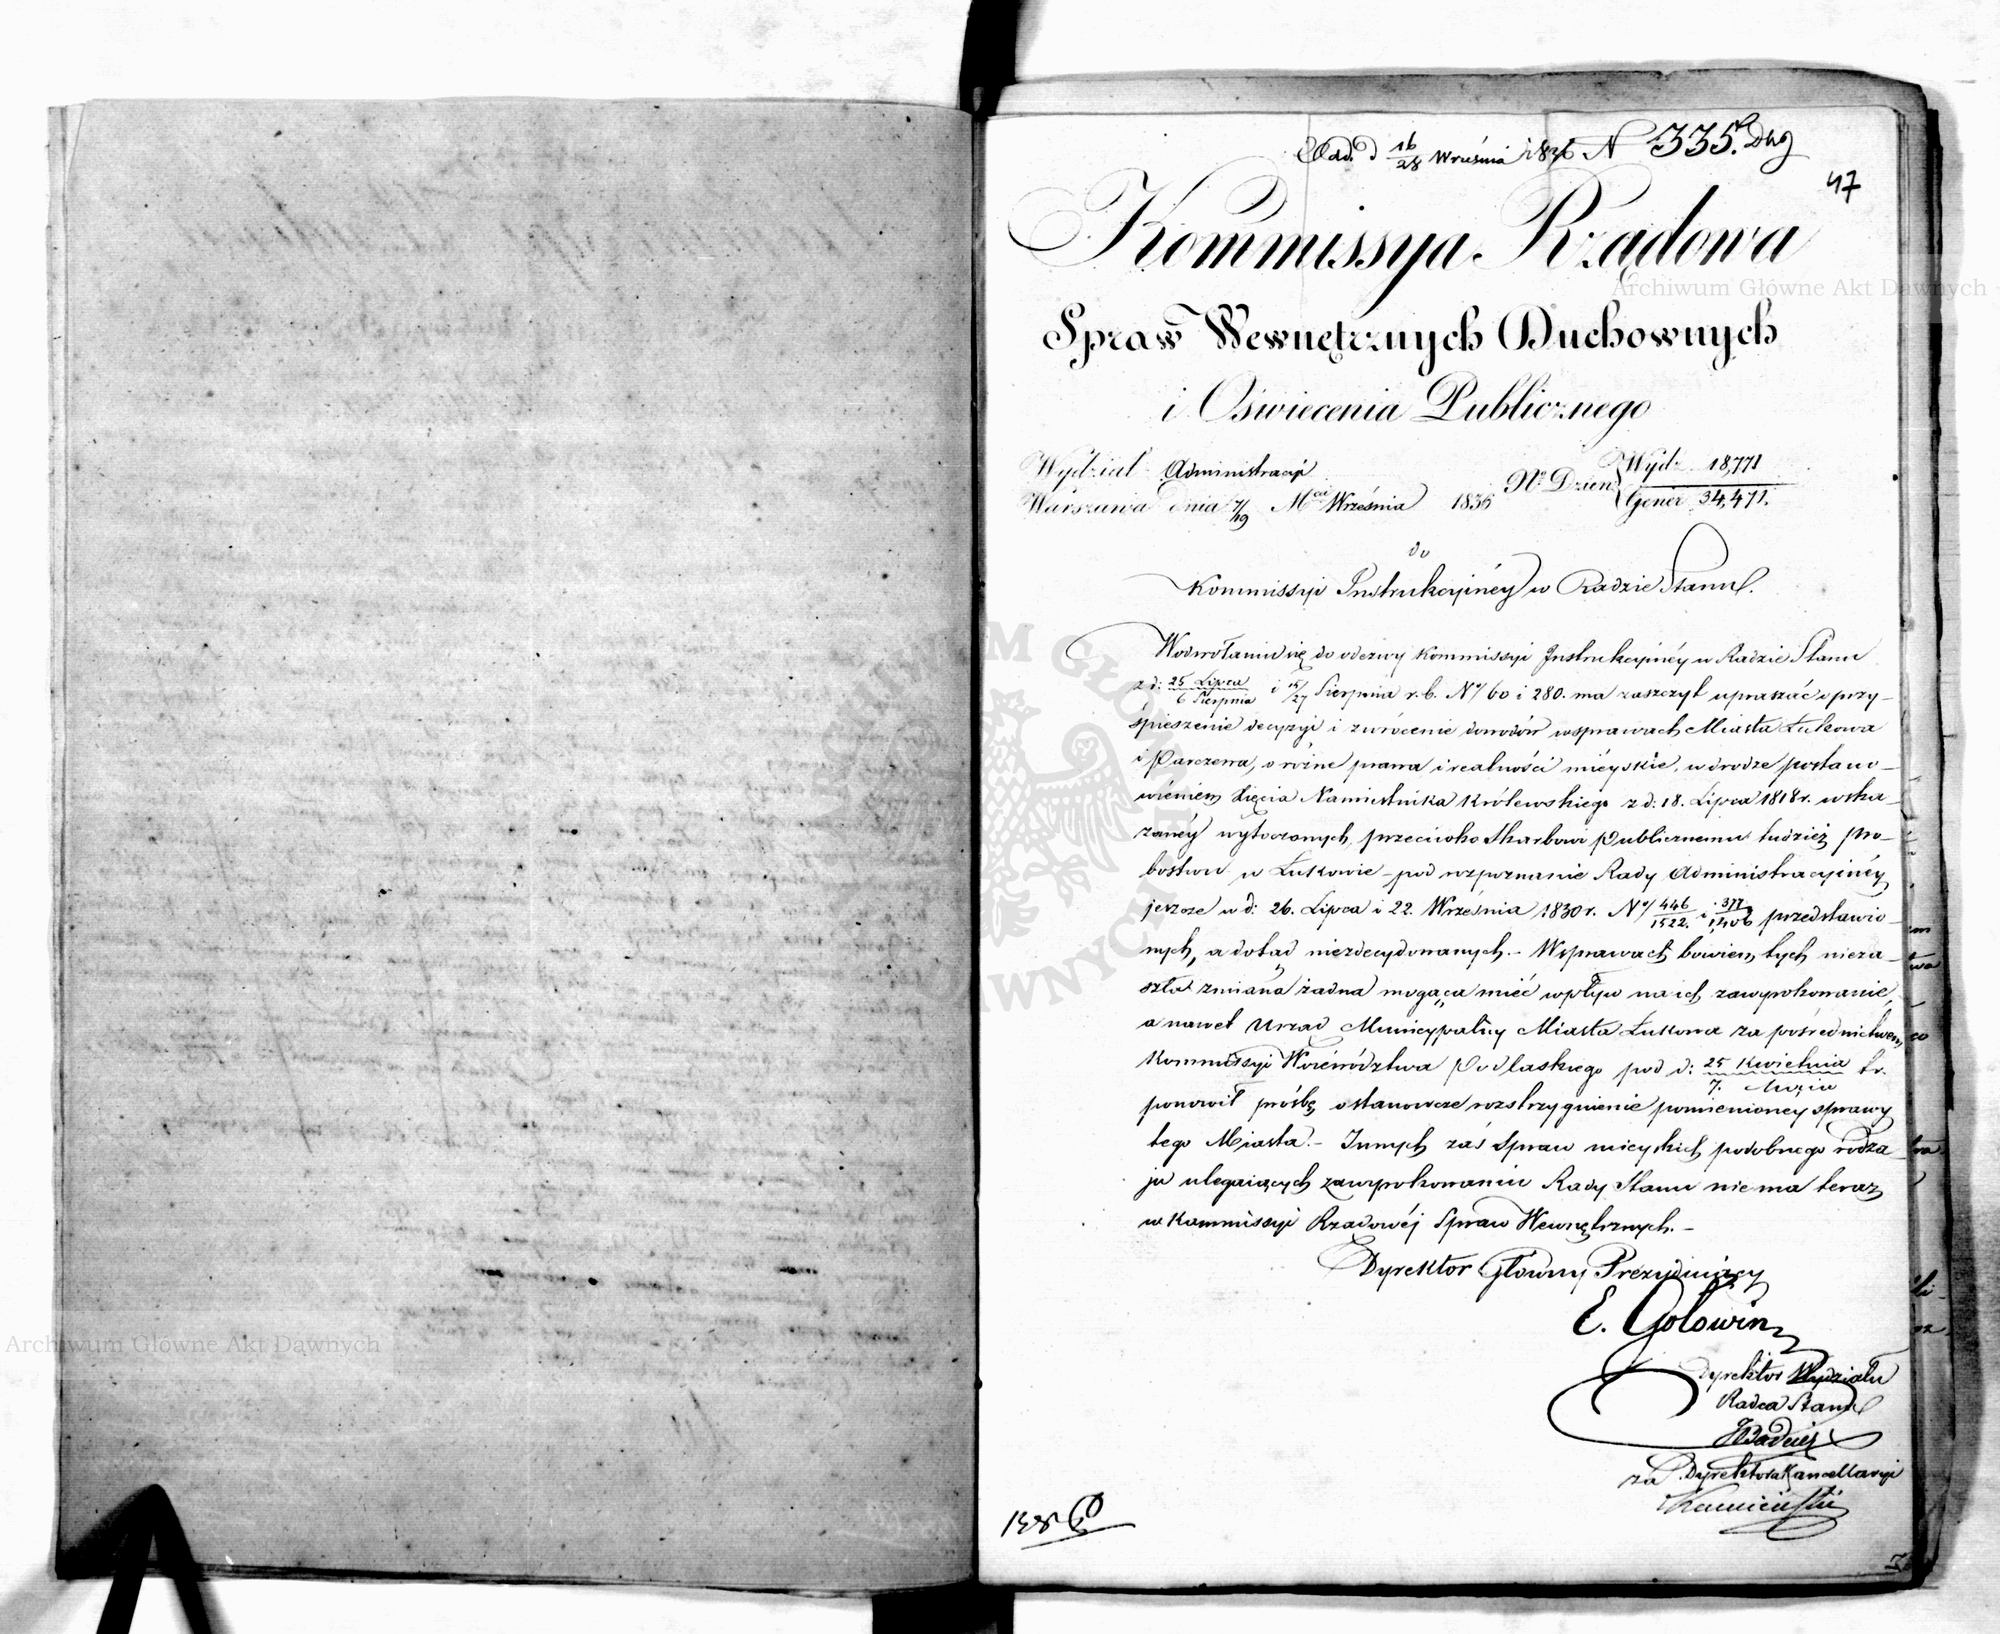 Odd. d 16/28 Września 1836 N 335. Dbg
47
Kommissya Rządowa
Spraw Wewnętrznych Duchownych
i Oświecenia Publicznego
Wydział Administracyi
Warszawa dnia 7/19 Mca Września 1836
No Dzien Wydz 18,771
Gener 34,471.
do
Kommissyi Instrukcyinéy w Radzie Stanu.
W odwołaniu się do odezwy Kommissyi Instrukcyinéy w Radzie Stanu
z d: 25 Lipca/6 Sierpnia i 15/27 Sierpnia r. b. No/ 60 i 280. ma zaszczyt upraszać o przy-
śpieszenie decyzyi i zwrócenie dowodów w sprawach Miasta Łukowa
i Parczewa, o różne prawa i realności mieyskie, w drodze postano-
wieniem Xięcia Namiestnika Królewskiego z d: 18. Lipca 1818 r. wska-
zanéy wytoczonych, przeciwko Skarbowi publicznemu tudzież pro-
bostwu w Łukowie - pod rozpoznanie Rady Administracyinéy
jeszcze w d: 26. Lipca i 22. Września 1830 r. No/ 446/1522. i 377/1,406 przedstawio-
nych, a dotąd niezdecydowanych. - W sprawach bowiem tych nieza-
szła zmiana żadna mogąca mieć wpływ na ich zawyrokowanie,
a nawet Urząd Municypalny Miasta Łukowa za pośrednictwem
Kommissyi Woiewództwa Podlaskiego pod d: 25 Kwietnia/7. Maja t. r.
ponowił prośbę o stanowcze rozstrzygnienie pomienioney sprawy
tego Miasta. - Innych zaś Spraw mieyskich podobnego rodza-
ju ulegaiących zawyrokowaniu Rady Stanu nie ma teraz
w Kommissyi Rządowéj Spraw Wewnętrznych. -
Dyrektor Główny Prezyduiący
E. Gołowin
Dyrektor Wydziału
Radca Stanu
za Dyrektora Kancellaryi
Kamieński
Archiwum Główne Akt Dawnych
Archiwum Główne Akt Dawnych